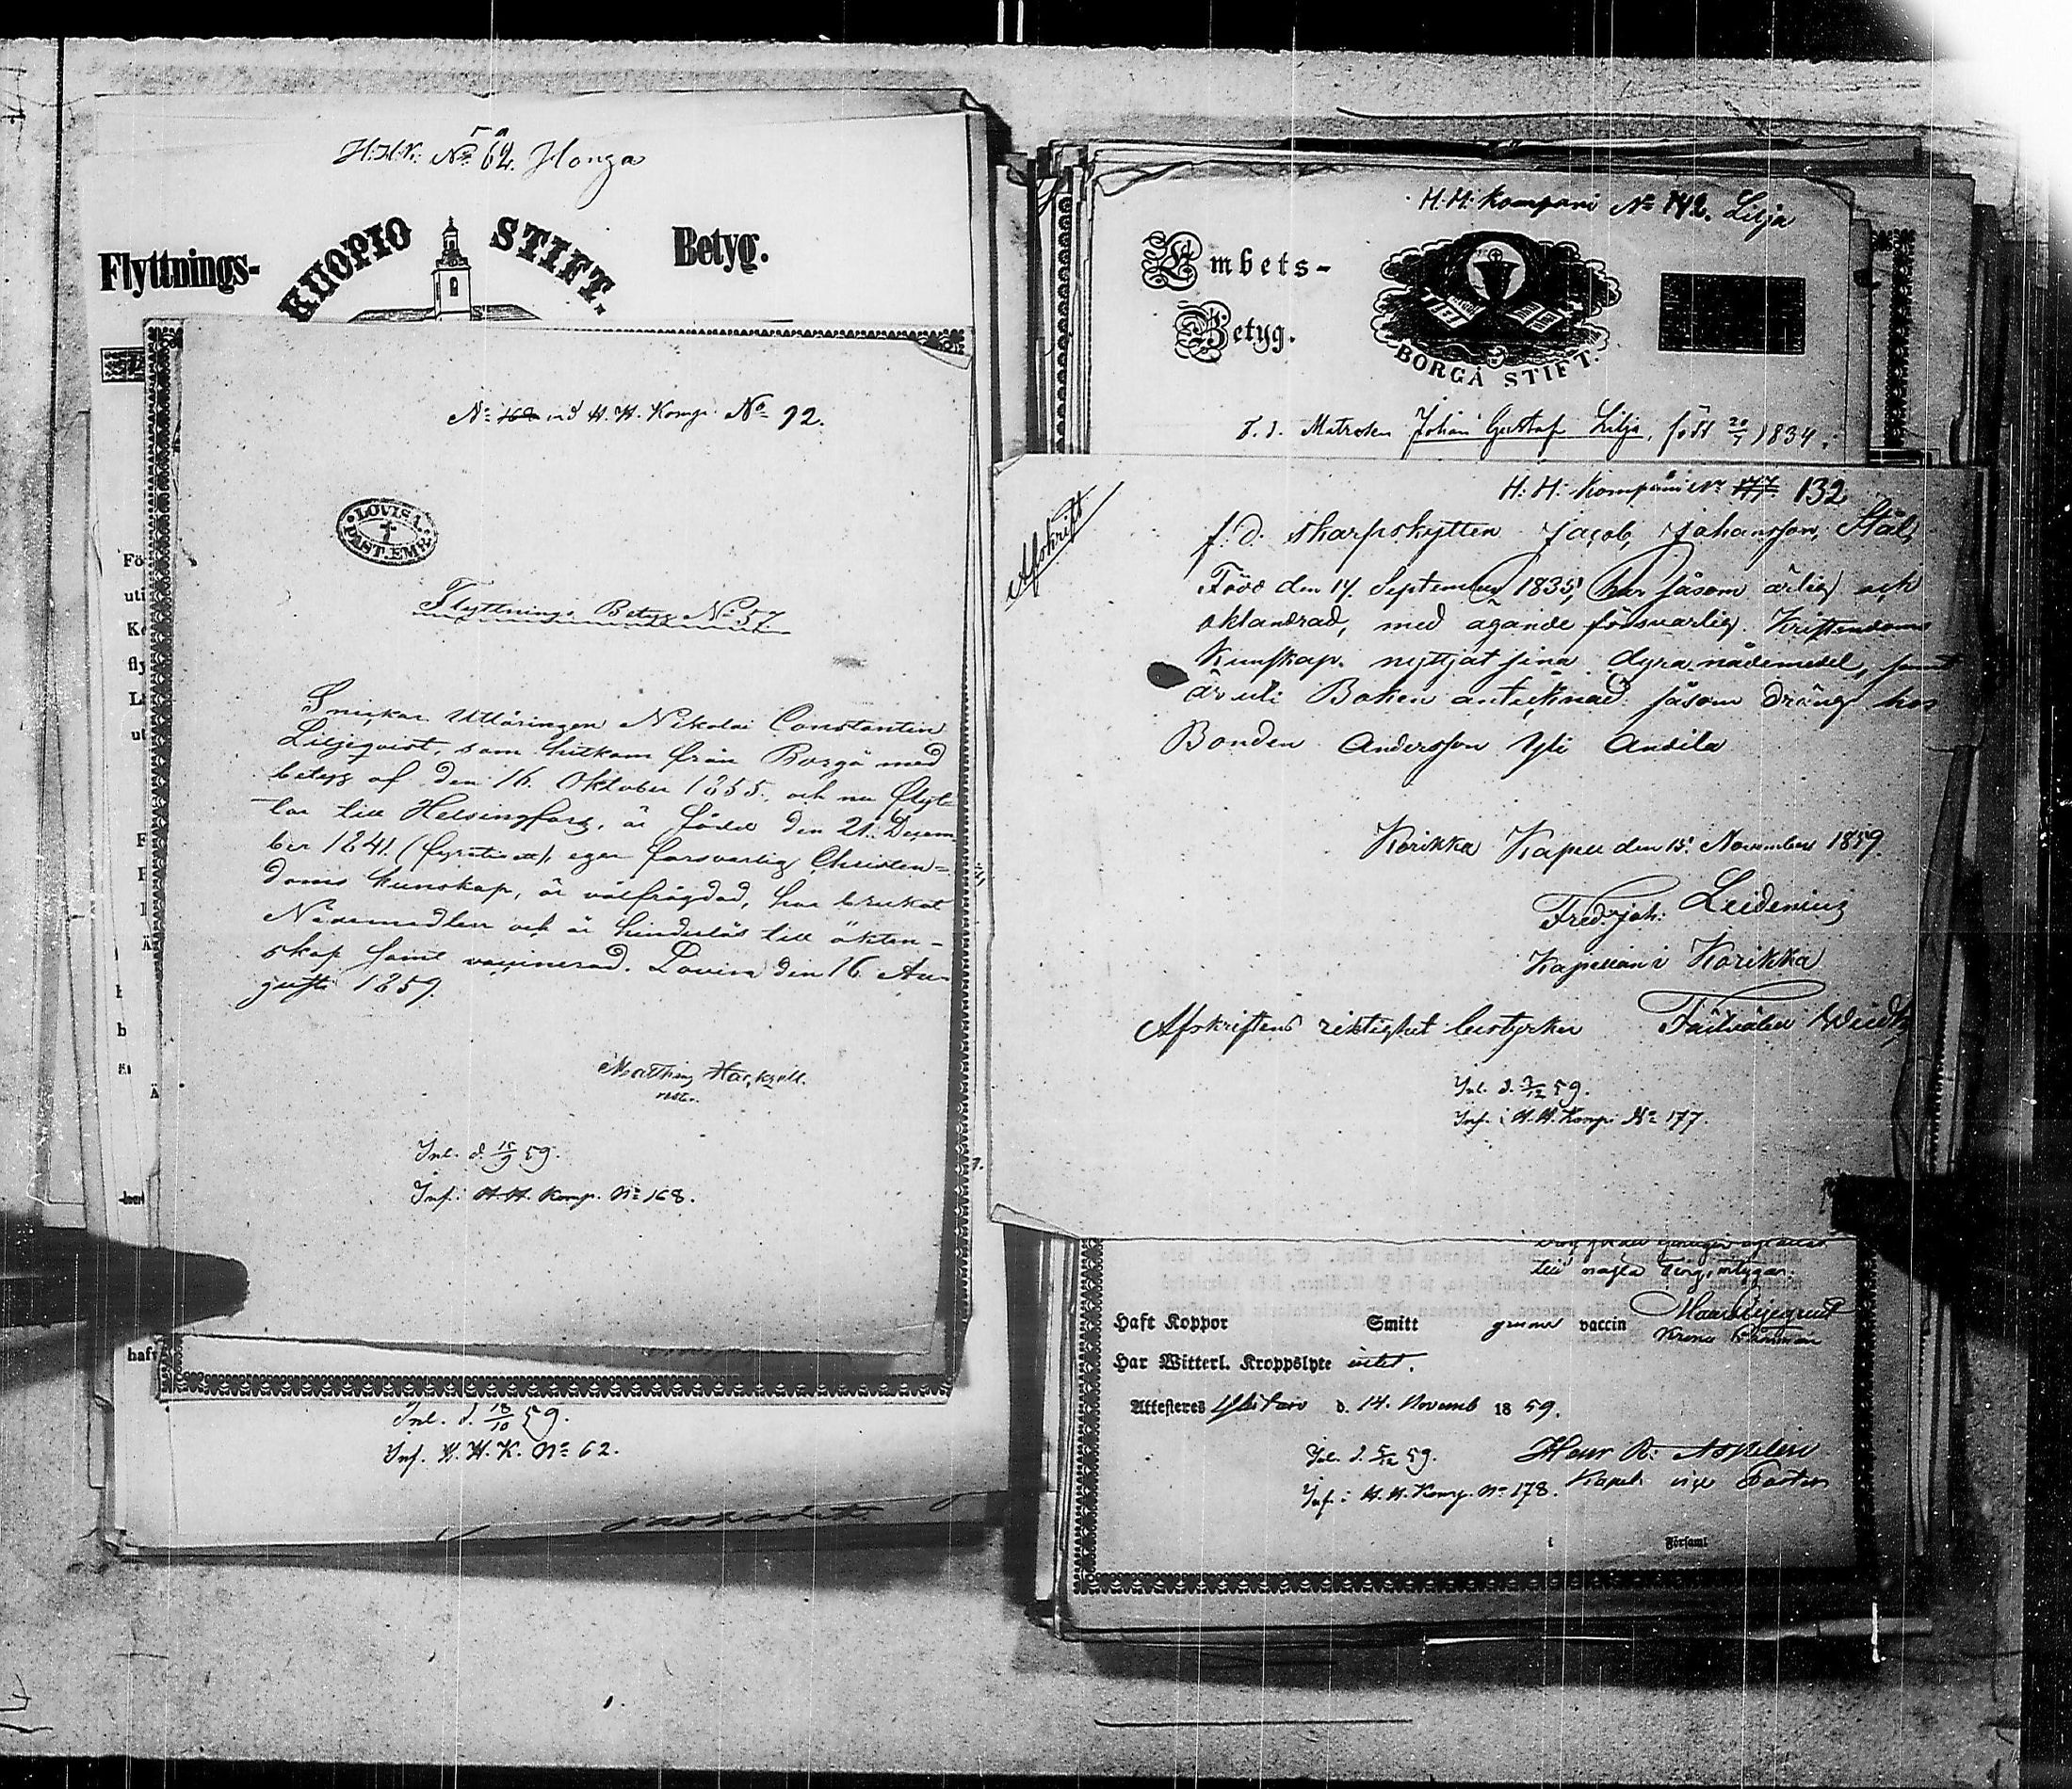 H.H.K. No 62. Honga
Flyttnings- KUOPIO STIFT. Betyg.
No 168 vid H. H. Komp. No 92.
LOVISA. PAST. EMB.
Flyttnings Betyg No 57.
Snickar Utläringen Nikolai Constantin
Liljeqvist, som hitkom från Borgå med
betyg af den 16. Oktober 1855. och nu flyt-
tar till Helsingfors, är född den 21. Decem
ber 1841 (fyratiett), eger försvarlig Christen-
doms kunskap, är välfrägdad, har brukat
Nådemedlen och är hinderlös till äkten-
skap samt vaccinerad. Lovisa den 16 Au-
gusti 1859.
Mathias Hackzell.
Inl. d. 15/9 59.
Inf. i H. H. Komp. No 168.
haft
Inl. d. 18/10 59.
Inf. H. H. K. No 62.
H. H. Kompani No 142. Lilja
Embets-
Betyg.
BORGÅ STIFT.
F. d. Matrosen Johan Gustaf Lilja, född 20/7 1834.
H. H. Kompani No 177 132
Afskrift
f. d. skarpskytten Jacob Johansson Stål,
Född den 14 September 1835, har såsom ärlig och
oklandrad, med ägande försvarlig Kristendoms
Kunskap, nyttjat sina dyra nådemedel, samt
är uti Boken antecknad såsom dräng hos
Bonden Andersson Yli Andila
Korikka Kapell den 15 November 1859.
Fred. Joh. Leidenius
Kapellan i Korikka
Afskriftens riktighet bestyrker
Inl. d. 3/12 59.
Inf. i H. H. Komp. No 177.
till några
Haft Koppor Smitt genom vaccin
Har Witterl. Kroppslyte intet.
Attesteras Ylistaro d. 14. Novemb 18 59.
Inl. d. 5/12 59. Henr R. Aspelin
Inf. i H. H. Komp. No 178. Kapell. vice Pastor
i Församl